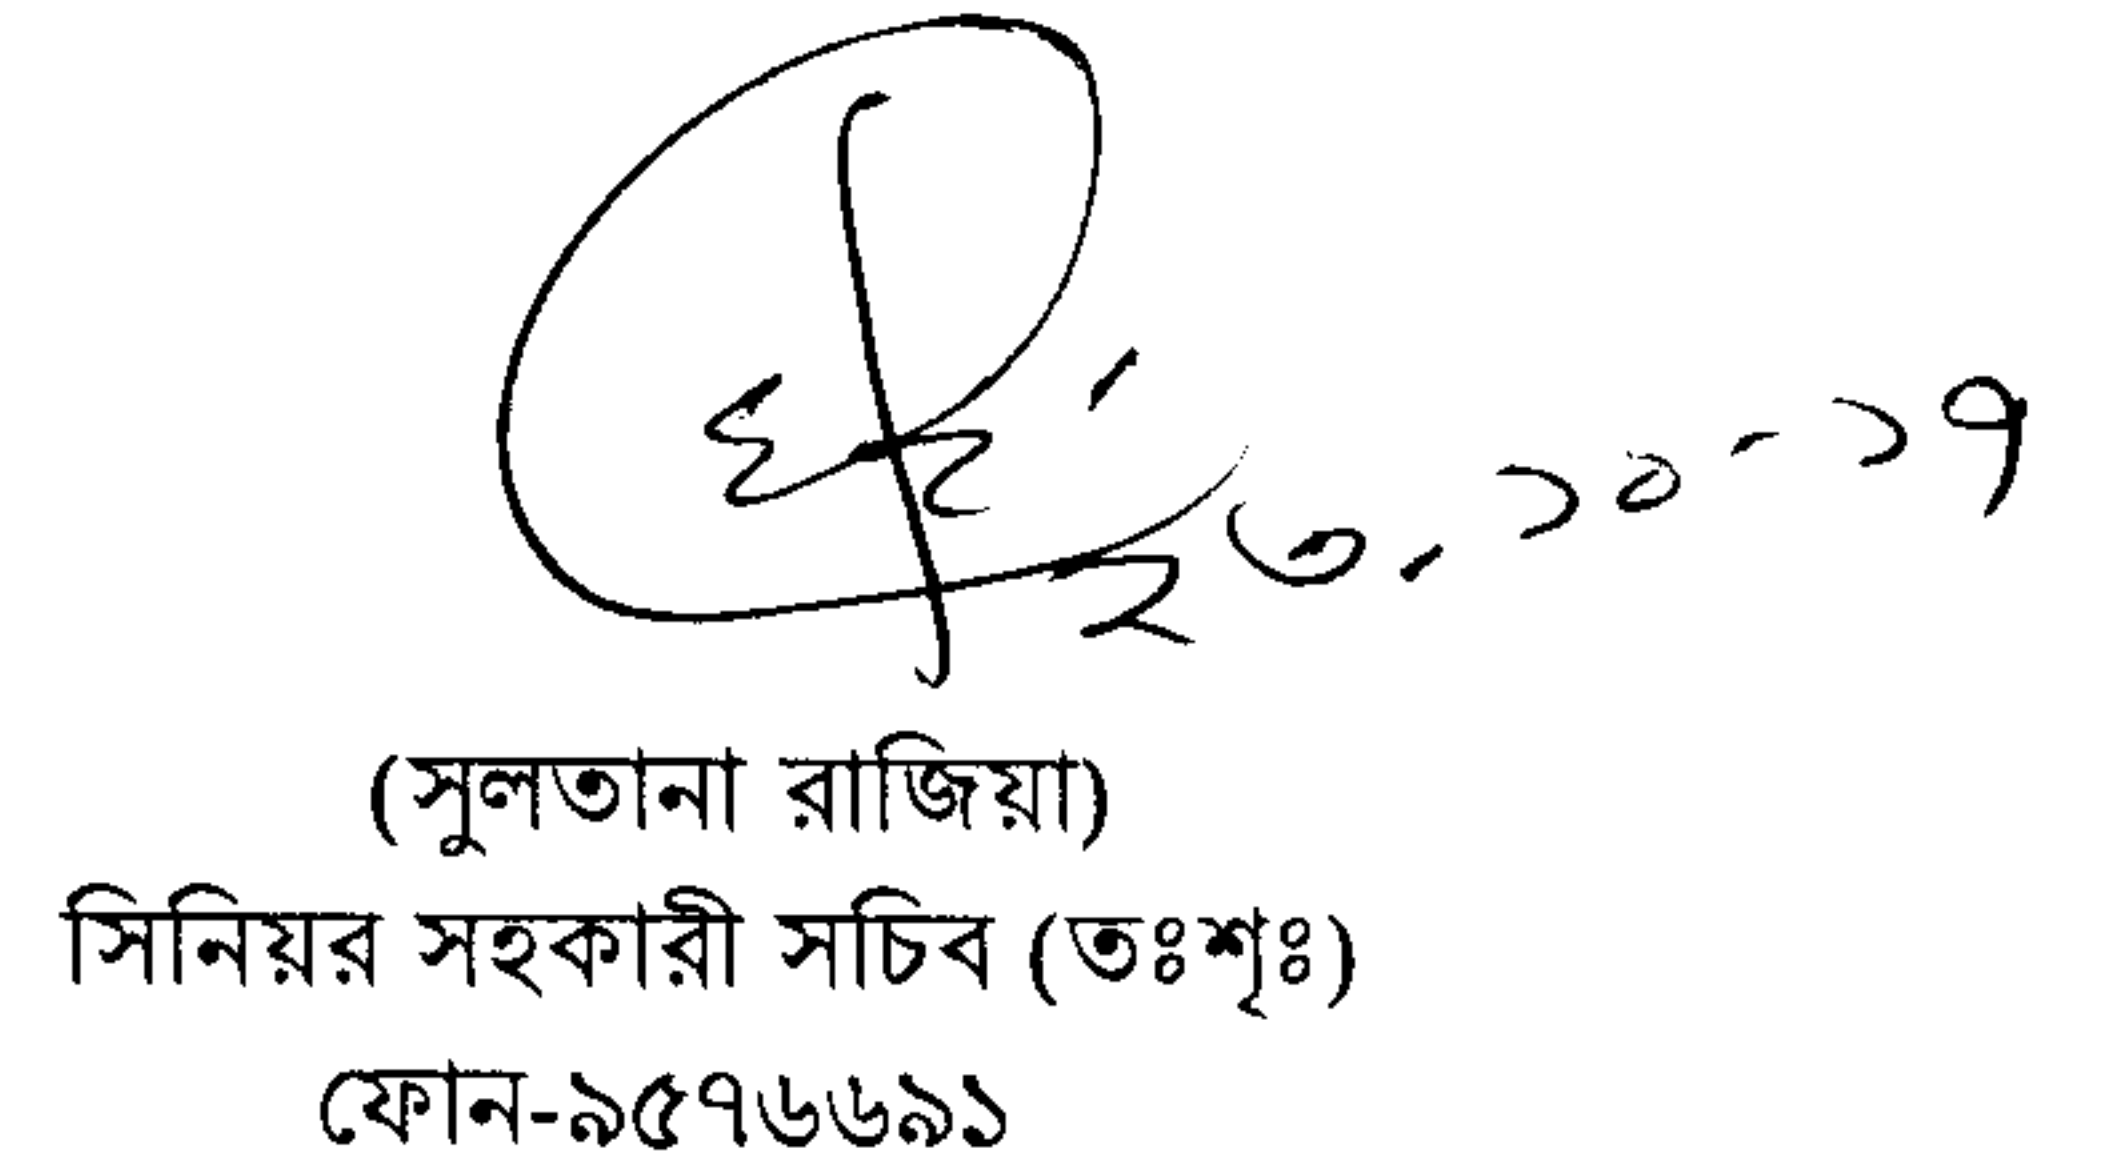 ২৩.১০-১৭
(সুলতানা রাজিয়া)
সিনিয়র সহকারী সচিব (তঃশৃঃ)
ফোন-৯৫৭৬৬৯১